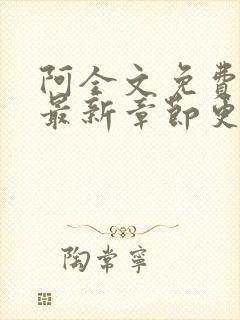 阿全文免费
最新章节更
陶常宁